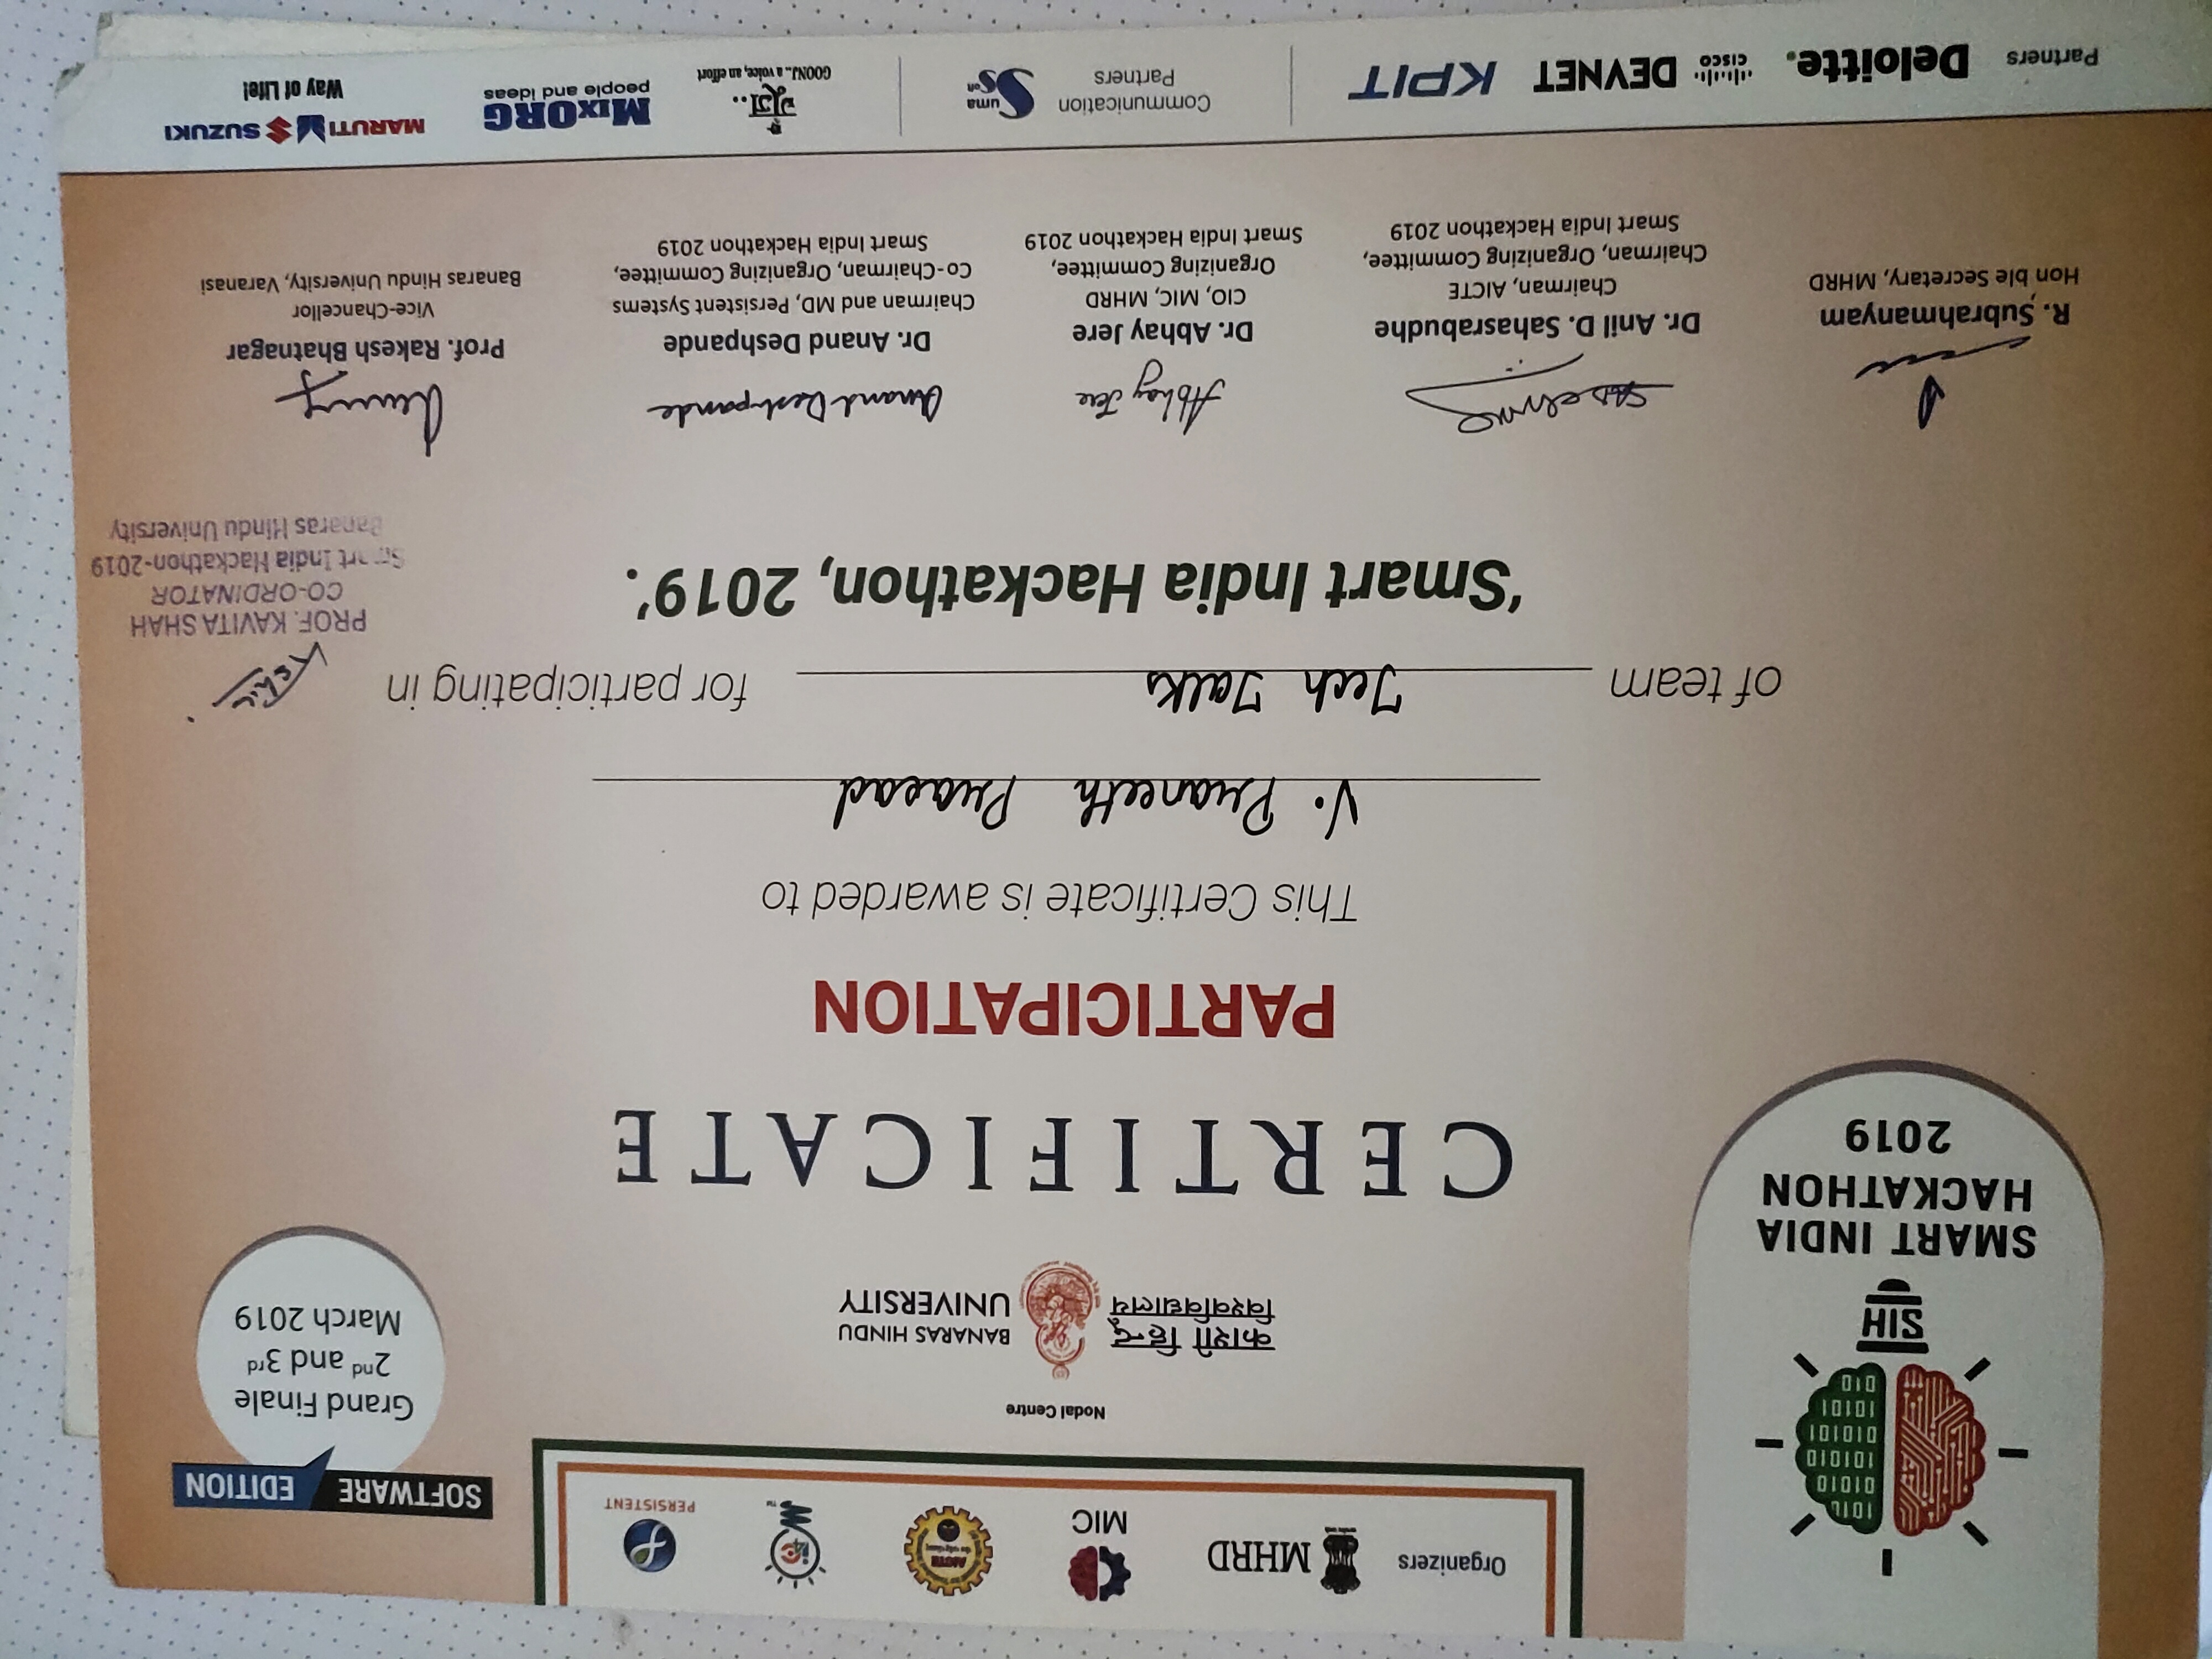 SMART INDIA
HACKATHON
2019
SIH
Organizers
MHRD
MIC
AICTE
i4c
PERSISTENT
SOFTWARE EDITION
Grand Finale
2nd and 3rd
March 2019
Nodal Centre
काशी हिन्दू
विश्वविद्यालय
BANARAS HINDU
UNIVERSITY
CERTIFICATE
PARTICIPATION
This Certificate is awarded to
V. Praneeth Prasad
of team Tech Talks for participating in
'Smart India Hackathon, 2019'.
PROF. KAVITA SHAH
CO-ORDINATOR
Smart India Hackathon-2019
Banaras Hindu University
Abhay Jere
Anand Deshpande
R. Subrahmanyam
Hon ble Secretary, MHRD
Dr. Anil D. Sahasrabudhe
Chairman, AICTE
Chairman, Organizing Committee,
Smart India Hackathon 2019
Dr. Abhay Jere
CIO, MIC, MHRD
Organizing Committee,
Smart India Hackathon 2019
Dr. Anand Deshpande
Chairman and MD, Persistent Systems
Co-Chairman, Organizing Committee,
Smart India Hackathon 2019
Prof. Rakesh Bhatnagar
Vice-Chancellor
Banaras Hindu University, Varanasi
Partners
Deloitte.
CISCO DEVNET
KPIT
Communication
Partners
Suma Soft
गूंज..
GOONJ.. a voice, an effort
MIXORG
people and ideas
MARUTI SUZUKI
Way of Life!